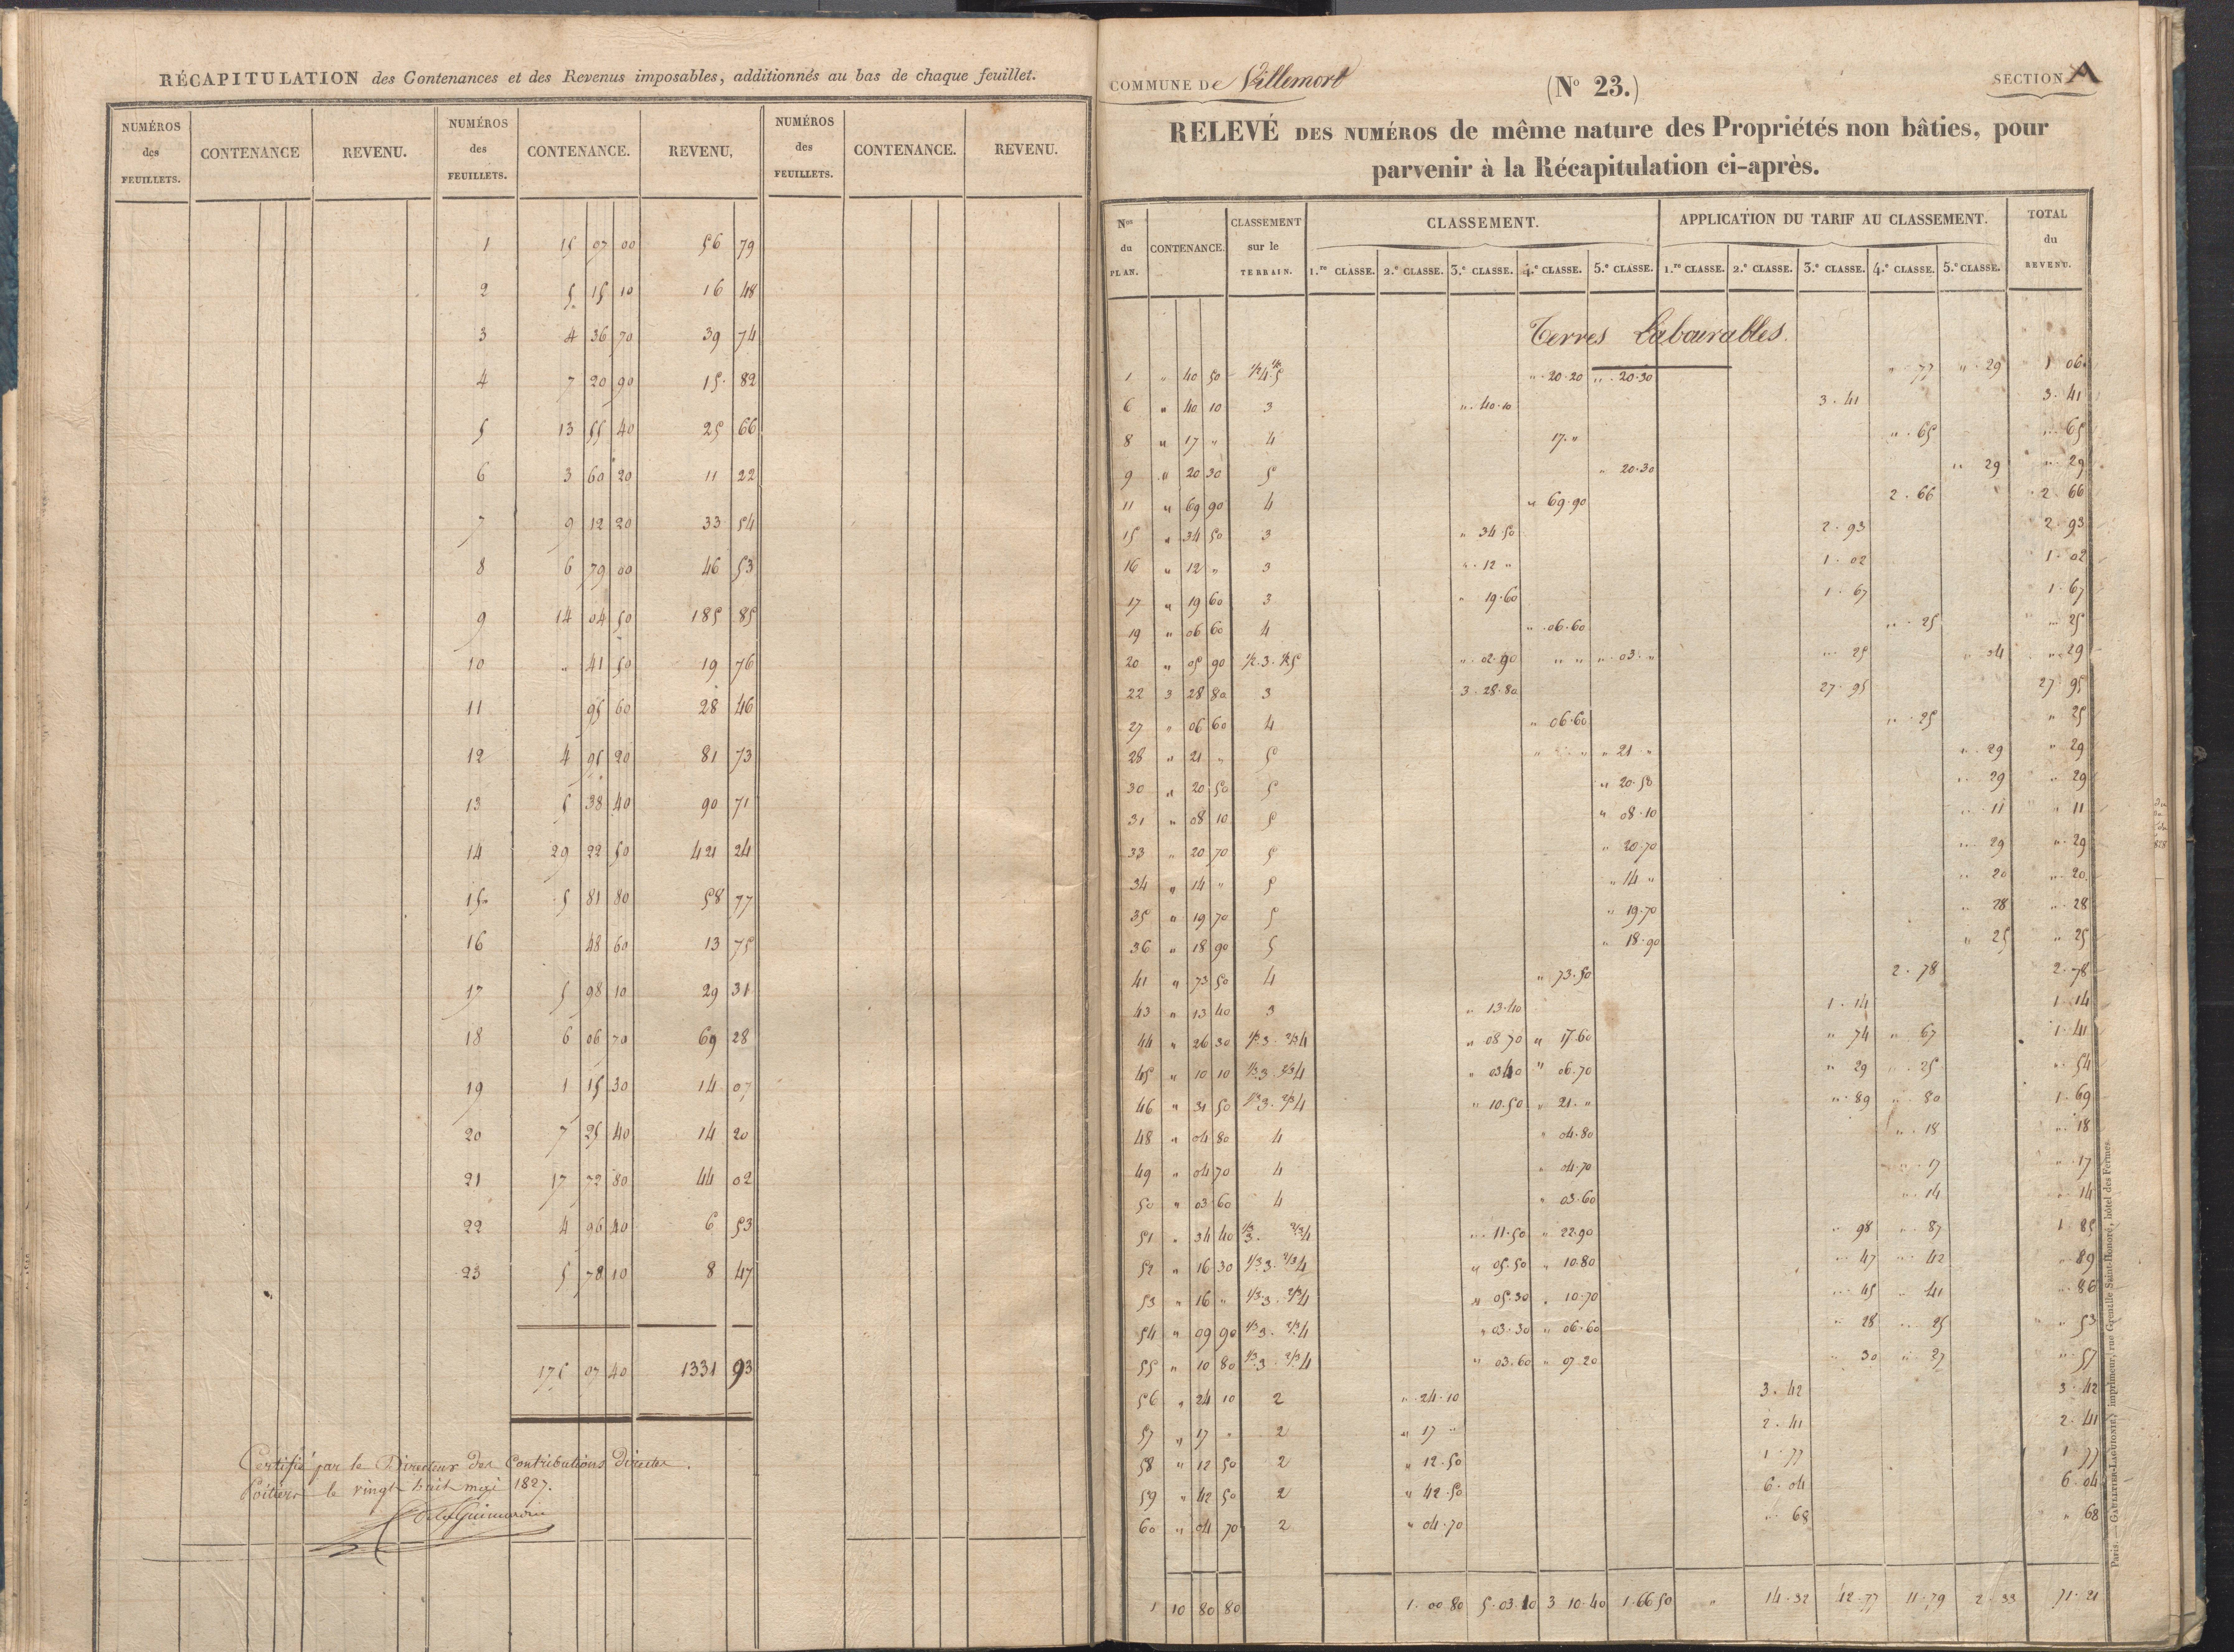 RÉCAPITULATION des Contenances et des Revenus imposables, additionnés au bas de chaque feuillet.
NUMÉROS des FEUILLETS. CONTENANCE REVENU. NUMÉROS des FEUILLETS. CONTENANCE. REVENU, NUMÉROS des FEUILLETS. CONTENANCE. REVENU.
1 15 07 00 56 79
2 5 15 10 16 48
3 4 36 70 39 74
4 7 20 90 15. 82
5 13 55 40 25 66
6 3 60 20 11 22
7 9 12 20 33 54
8 6 79 00 46 53
9 14 04 50 185 85
10 " 41 50 19 76
11 95 60 28 46
12 4 95 20 81 73
13 5 38 40 90 71
14 29 22 50 421 24
15 5 81 80 58 77
16 48 60 13 75
17 5 98 10 29 31
18 6 06 70 69 28
19 1 15 30 14 07
20 7 25 40 14 20
21 17 72 80 44 02
22 4 96 40 6 53
23 5 78 10 8 47
175 07 40 1331 93
Certifié par le Directeur des Contributions Directes.
Poitiers le vingt huit mai 1827.
COMMUNE De Villemort
(No 23.)
SECTION A
RELEVÉ DES NUMÉROS de même nature des Propriétés non bâties, pour
parvenir à la Récapitulation ci-après.
Nos du PLAN. CONTENANCE. CLASSEMENT sur le TERRAIN. CLASSEMENT. APPLICATION DU TARIF AU CLASSEMENT. TOTAL du REVENU.
1.re CLASSE. 2.e CLASSE. 3.e CLASSE. 4.e CLASSE. 5.e CLASSE. 1.re CLASSE. 2.e CLASSE. 3.e CLASSE. 4.e CLASSE. 5.e CLASSE.
Terres Labourables.
1 " 40 50 1/2 4. 1/2 5 " 20.20 " 20.30 " 77 " 29 1 06
6 " 40 10 3 " 40.10 3. 41 3. 41
8 " 17 " 4 17. " " 65 " 65
9 " 20 30 5 " 20.30 " 29 " 29
11 " 69 90 4 " 69.90 2. 66 2 66
15 " 34 50 3 " 34.50 2. 93 2. 93
16 " 12 " 3 " 12 " 1. 02 1. 02
17 " 19 60 3 " 19.60 1. 67 1. 67
19 " 06 60 4 " 06.60 " 25 " 25
20 " 05 90 1/2.3. 1/2 5 " 02.90 " " " 03. " " 25 " 04 " 29
22 3 28 80 3 3. 28.80 27. 95 27. 95
27 " 06 60 4 " 06.60 " 25 " 25
28 " 21 " 5 " " " 21 " " 29 " 29
30 " 20 50 5 " 20.50 " 29 " 29
31 " 08 10 5 " 08.10 " 11 " 11
33 " 20 70 5 " 20.70 " 29 " 29
34 " 14 " 5 " 14 " " 20 " 20
35 " 19 70 5 " 19.70 " 28 " 28
36 " 18 90 5 " 18.90 " 25 " 25
41 " 73 50 4 " 73.50 2. 78 2. 78
43 " 13 40 3 " 13.40 1. 14 1. 14
44 " 26 30 1/3 3. 2/3 4 " 08 70 " 17.60 " 74 " 67 1. 41
45 " 10 10 1/3 3. 2/3 4 " 03 40 " 06.70 " 29 " 25 " 54
46 " 31 50 1/3 3. 2/3 4 " 10.50 " 21. " " 89 " 80 1. 69
48 " 04 80 4 " 04.80 " 18 " 18
49 " 04 70 4 " 04.70 " 17 " 17
50 " 03 60 4 " 03.60 " 14 " 14
51 " 34 40 1/3 3. 2/3 4 " 11.50 " 22.90 " 98 " 87 1 85
52 " 16 30 1/3 3. 2/3 4 " 05.50 " 10.80 " 47 " 42 " 89
53 " 16 " 1/3 3. 2/3 4 " 05.30 " 10.70 " 45 " 41 " 86
54 " 09 90 1/3 3. 2/3 4 " 03.30 " 06.60 " 28 " 25 " 53
55 " 10 80 1/3 3. 2/3 4 " 03.60 " 07.20 " 30 " 27 " 57
56 " 24 10 2 " 24.10 3. 42 3. 42
57 " 17 " 2 " 17 " 2. 41 2. 41
58 " 12 50 2 " 12.50 1. 77 1 77
59 " 42 50 2 " 42.50 6. 04 6. 04
60 " 04 70 2 " 04.70 " 68 " 68
1 10 80 80 1. 00 80 5. 03.10 3 10.40 1.66 50 " 14.32 42.77 11.79 2.33 71.21
Paris. — GAULTIER-LAGUIONIE, imprimeur, rue Grenelle Saint-Honoré, hôtel des Fermes.